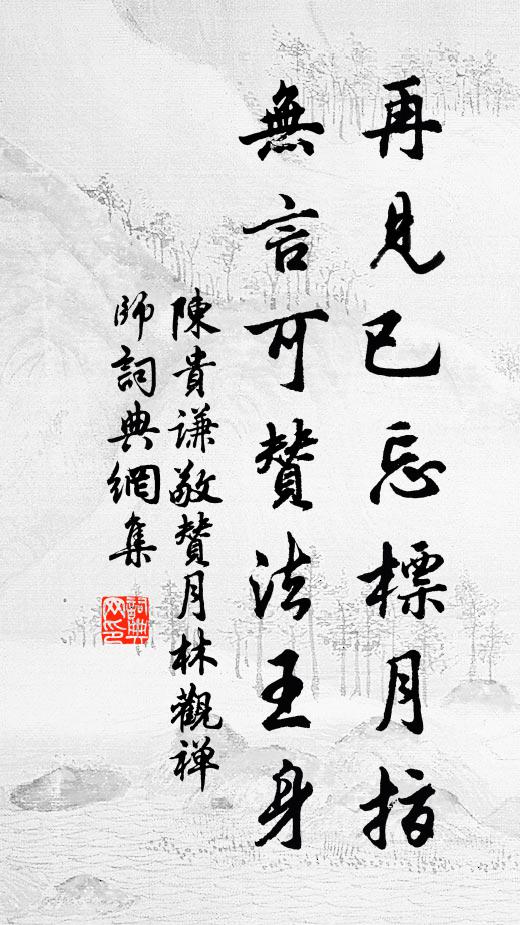 再見已忘標月指
無言可贊法王身
陳貴謙敬贊月林觀禅
師詞典網集
詞典
网印